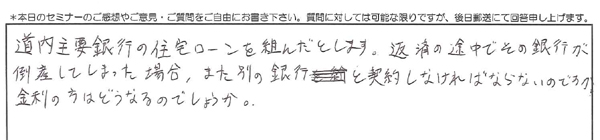 *本日のセミナーのご感想やご意見・ご質問をご自由にお書き下さい。質問に対しては可能な限りですが、後日郵送にて回答申し上げます。
道内主要銀行の住宅ローンを組んだとします。返済の途中でその銀行が
倒産してしまった場合、また別の銀行と契約しなければならないのですか
金利の方はどうなるのでしょうか。